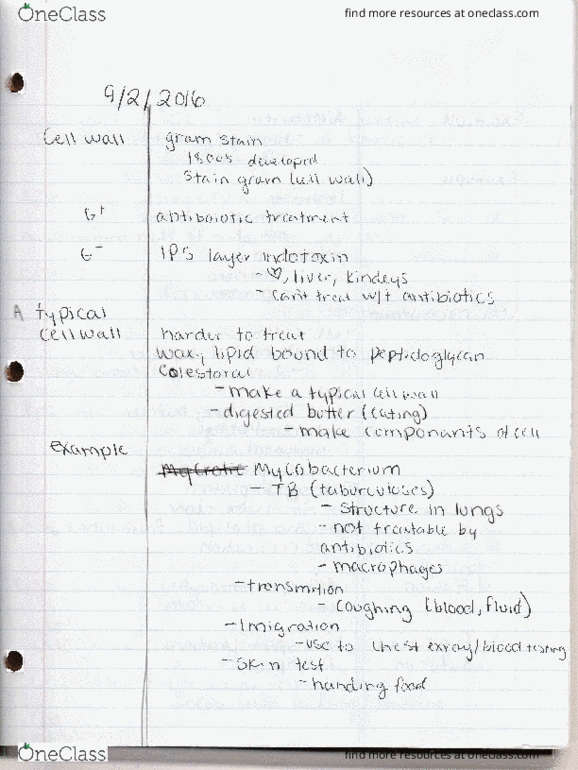 OneClass find more resources at oneclass.com
9/2/2016
Cell wall gram stain
1800s developed
Stain gram (cell wall)
G+ antibaiotic treatment
G- lPS layer indotoxin
- ♡, liver, kindeys
- Cant treat w/t antibiotics
A typical
cell wall harder to treat
wax, lipid bound to peptidoglycan
Colestoral
- make a typical cell wall
- digested butter (eating)
- make components of cell
example
Mycobacterium
- TB (taburculoses)
- structure in lungs
- not treatable by
antibiotics
- macrophages
- transmition
- Coughing (blood, fluid)
- Imigration
- use to chest exray/blood testing
- Skin test
- handing food
OneClass find more resources at oneclass.com